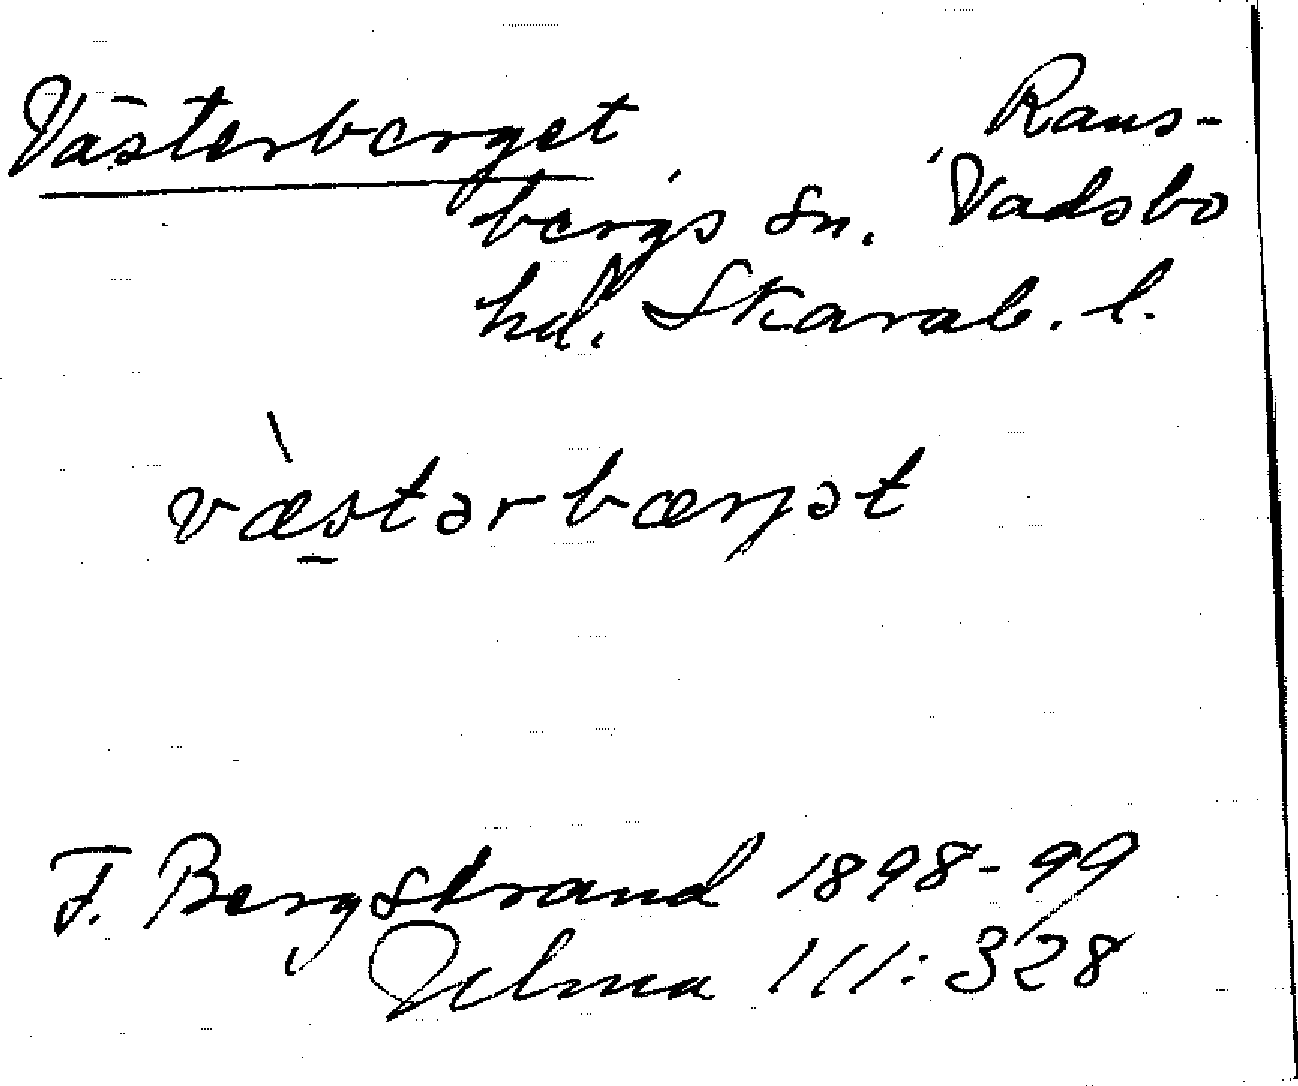 Västerberget Rans-
bergs sn. Vadsbo
hd. Skarab. l.
væstərbærjət
F. Bergstrand 1898-99
Jelma 111:328